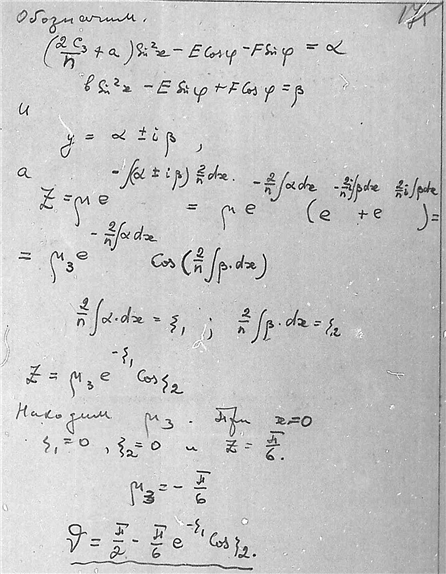 171
Обозначим.
(2C₃/n + a) Sin²x − E Cosφ − F Sinφ = α
b Sin²x − E Sinφ + F Cosφ = β
и
y = α ± iβ ,
а
Z = μ e^{−∫(α ± iβ) 2/n dx} = μ e^{−2/n ∫α dx} (e^{−2/n i∫β dx} + e^{2/n i∫β dx}) =
= μ₃ e^{−2/n ∫α dx} Cos(2/n ∫β·dx)
2/n ∫α·dx = ξ₁ ; 2/n ∫β·dx = ξ₂
Z = μ₃ e^{−ξ₁} Cosξ₂
Находим μ₃. При x=0
ξ₁=0 , ξ₂=0 и Z = π/6.
μ₃ = − π/6
ϑ = π/2 − π/6 e^{−ξ₁} Cosξ₂.